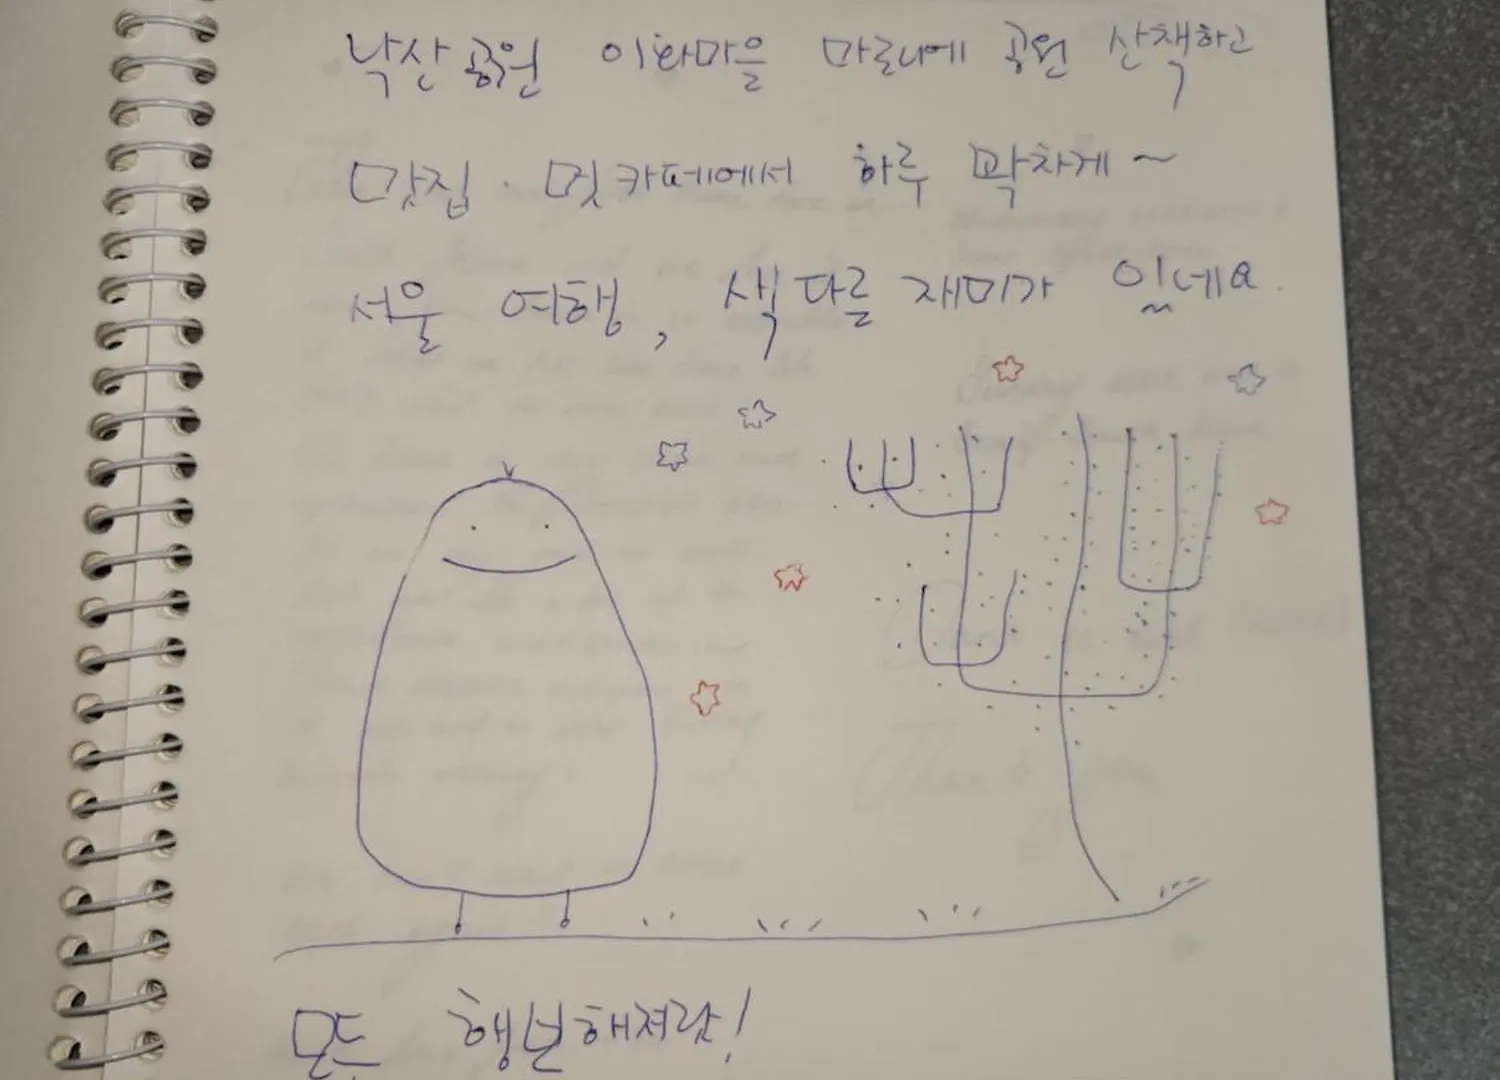 낙산공원 이화마을 마로니에 공원 산책하고
맛집 · 멋카페에서 하루 꽉차게 ~
서울 여행, 색다른 재미가 있네요.
모두 행복해져랏!